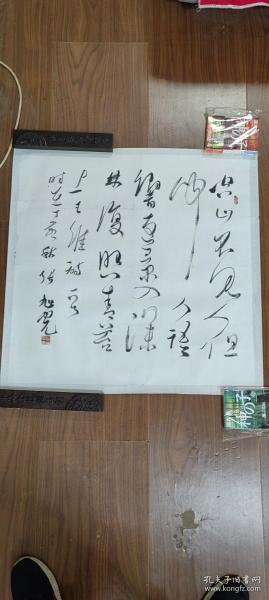 空山不见人但
闻人语
響返景入深
林復照青苔
上王維詩一首
时在丁亥秋张旭光
孔夫子旧书网